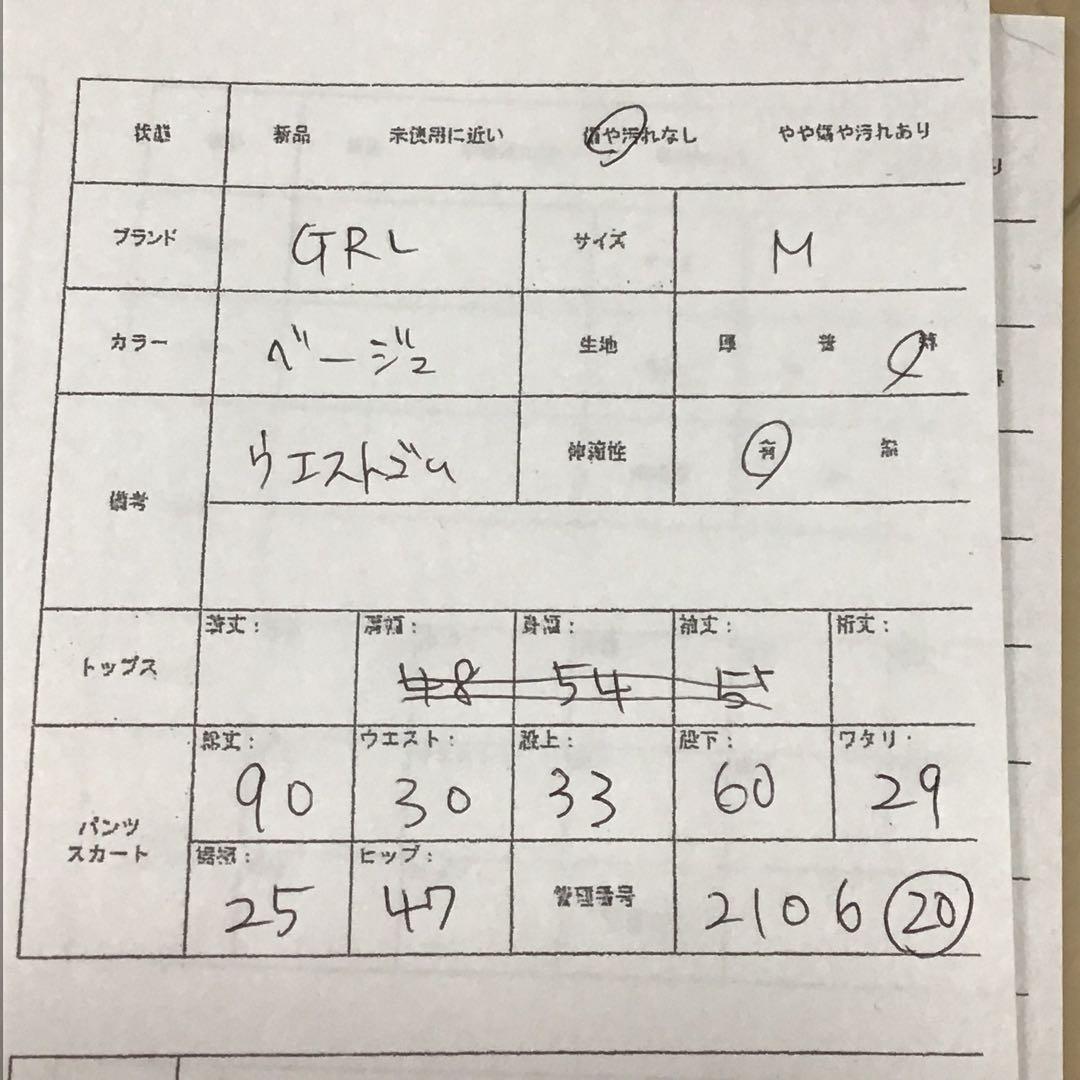 状態 新品 未使用に近い 傷や汚れなし やや傷や汚れあり
ブランド GRL サイズ M
カラー ベージュ 生地 厚 普 薄
備考 ウエストゴム 伸縮性 有 無
トップス 着丈: 肩幅: 48 身幅: 54 袖丈: 裄丈:
パンツ スカート 総丈: 90 ウエスト: 30 股上: 33 股下: 60 ワタリ: 29
裾幅: 25 ヒップ: 47 管理番号 2106 20